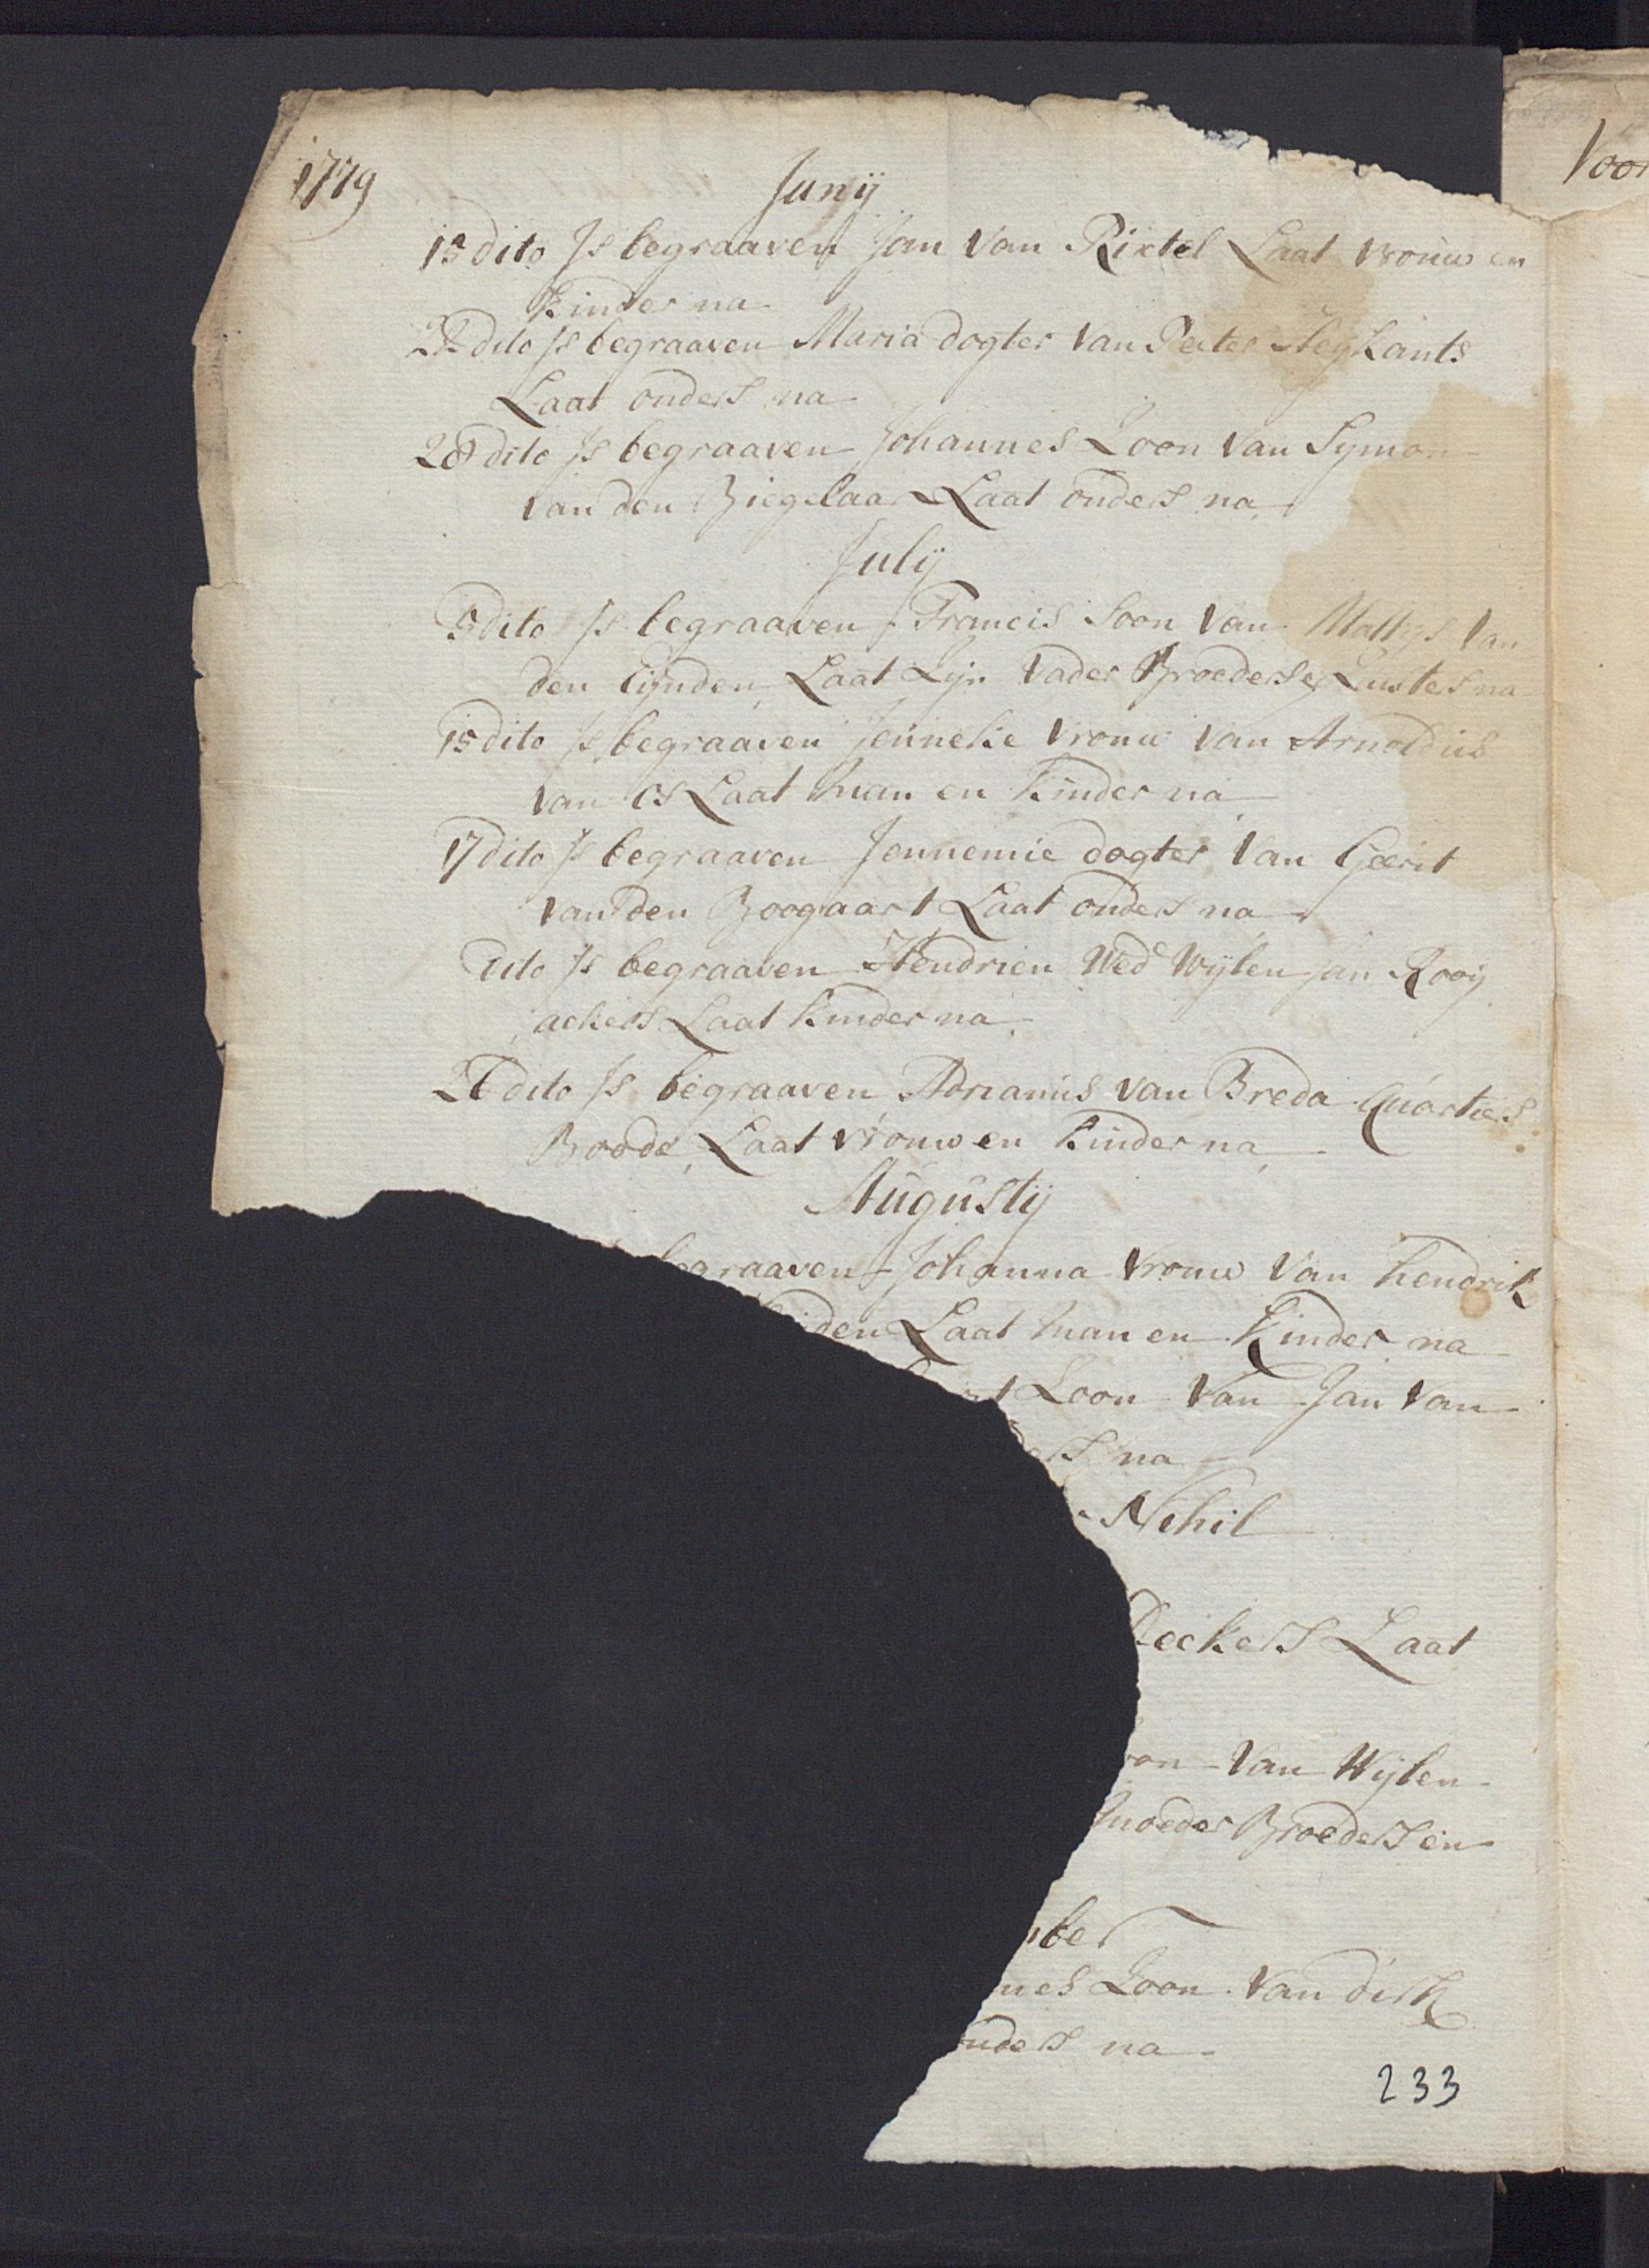 1779
Junij
13 dito Is begraaven Jan Van Rixtel Laat vrouw en
Kinder na
dito Is begraaven Maria dogter Van Peeter Heykants
Laat ouders na
28 dito Is begraaven Johannes Zoon Van Symon
van den Biegelaar Laat ouders na
Julij
5 dito Is begraaven Francis Soon Van Mattijs Van
den Eijnden, Laat Zijn Vader Broeders en Susters na
15 dito Is begraaven Jenneke Vrouw Van Arnoldus
van Os Laat man en Kinder na
17 dito Is begraaven Jennemie dogter Van Geerit
van den Boogaart Laat ouders na
dito Is begraaven Hendrien Wed Wijlen Jan Rooij
ackers Laat Kinder na
dito Is begraaven Adrianus van Breda Quartiers
Boode, Laat Vrouw en Kinder na
Augustij
graaven Johanna Vrouw Van Hendrik
ijden Laat man en Kinder na
Zoon Van Jan Van
ders na
Nihil
Deckers Laat
oon Van Wijlen
moeder Broeders en
ber
nes Zoon Van dirk
uders na
233
Voor